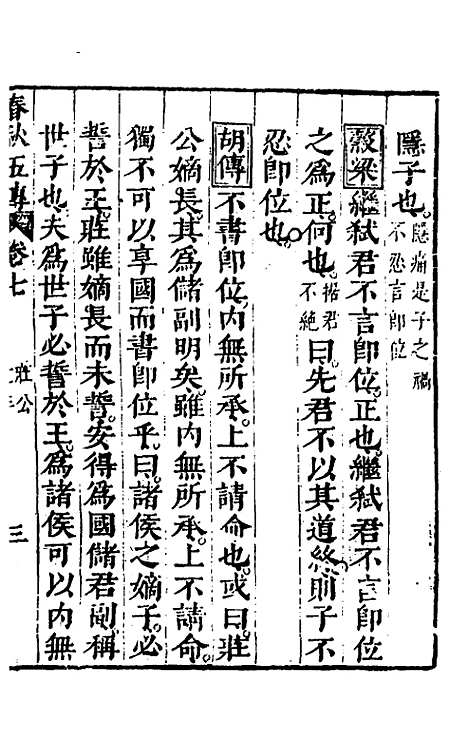 隱子也。隱痛是子之禍不忍言卽位
穀梁繼弑君不言卽位。正也。繼弑君不言卽位
之爲正。何也。據君不絕曰。先君不以其道終。則子不
忍卽位也。
胡傳不書卽位。內無所承。上不請命也。或曰。莊
公嫡長。其爲儲副明矣。雖內無所承。上不請命。
獨不可以享國而書卽位乎。曰。諸侯之嫡子。必
誓於王。莊雖嫡長而未誓。安得爲國儲君副。稱
世子也。夫爲世子必誓於王。爲諸侯可以內無
春秋五傳 卷七 莊公 三